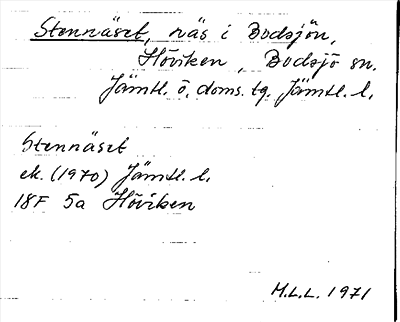 Stennäset, näs i Bodsjön,
Höviken, Bodsjö sn.
Jämtl. ö. doms. tg. Jämtl. l.
Stennäset
ek. (1970) Jämtl. l.
18F 5a Höviken
M.L.L. 1971